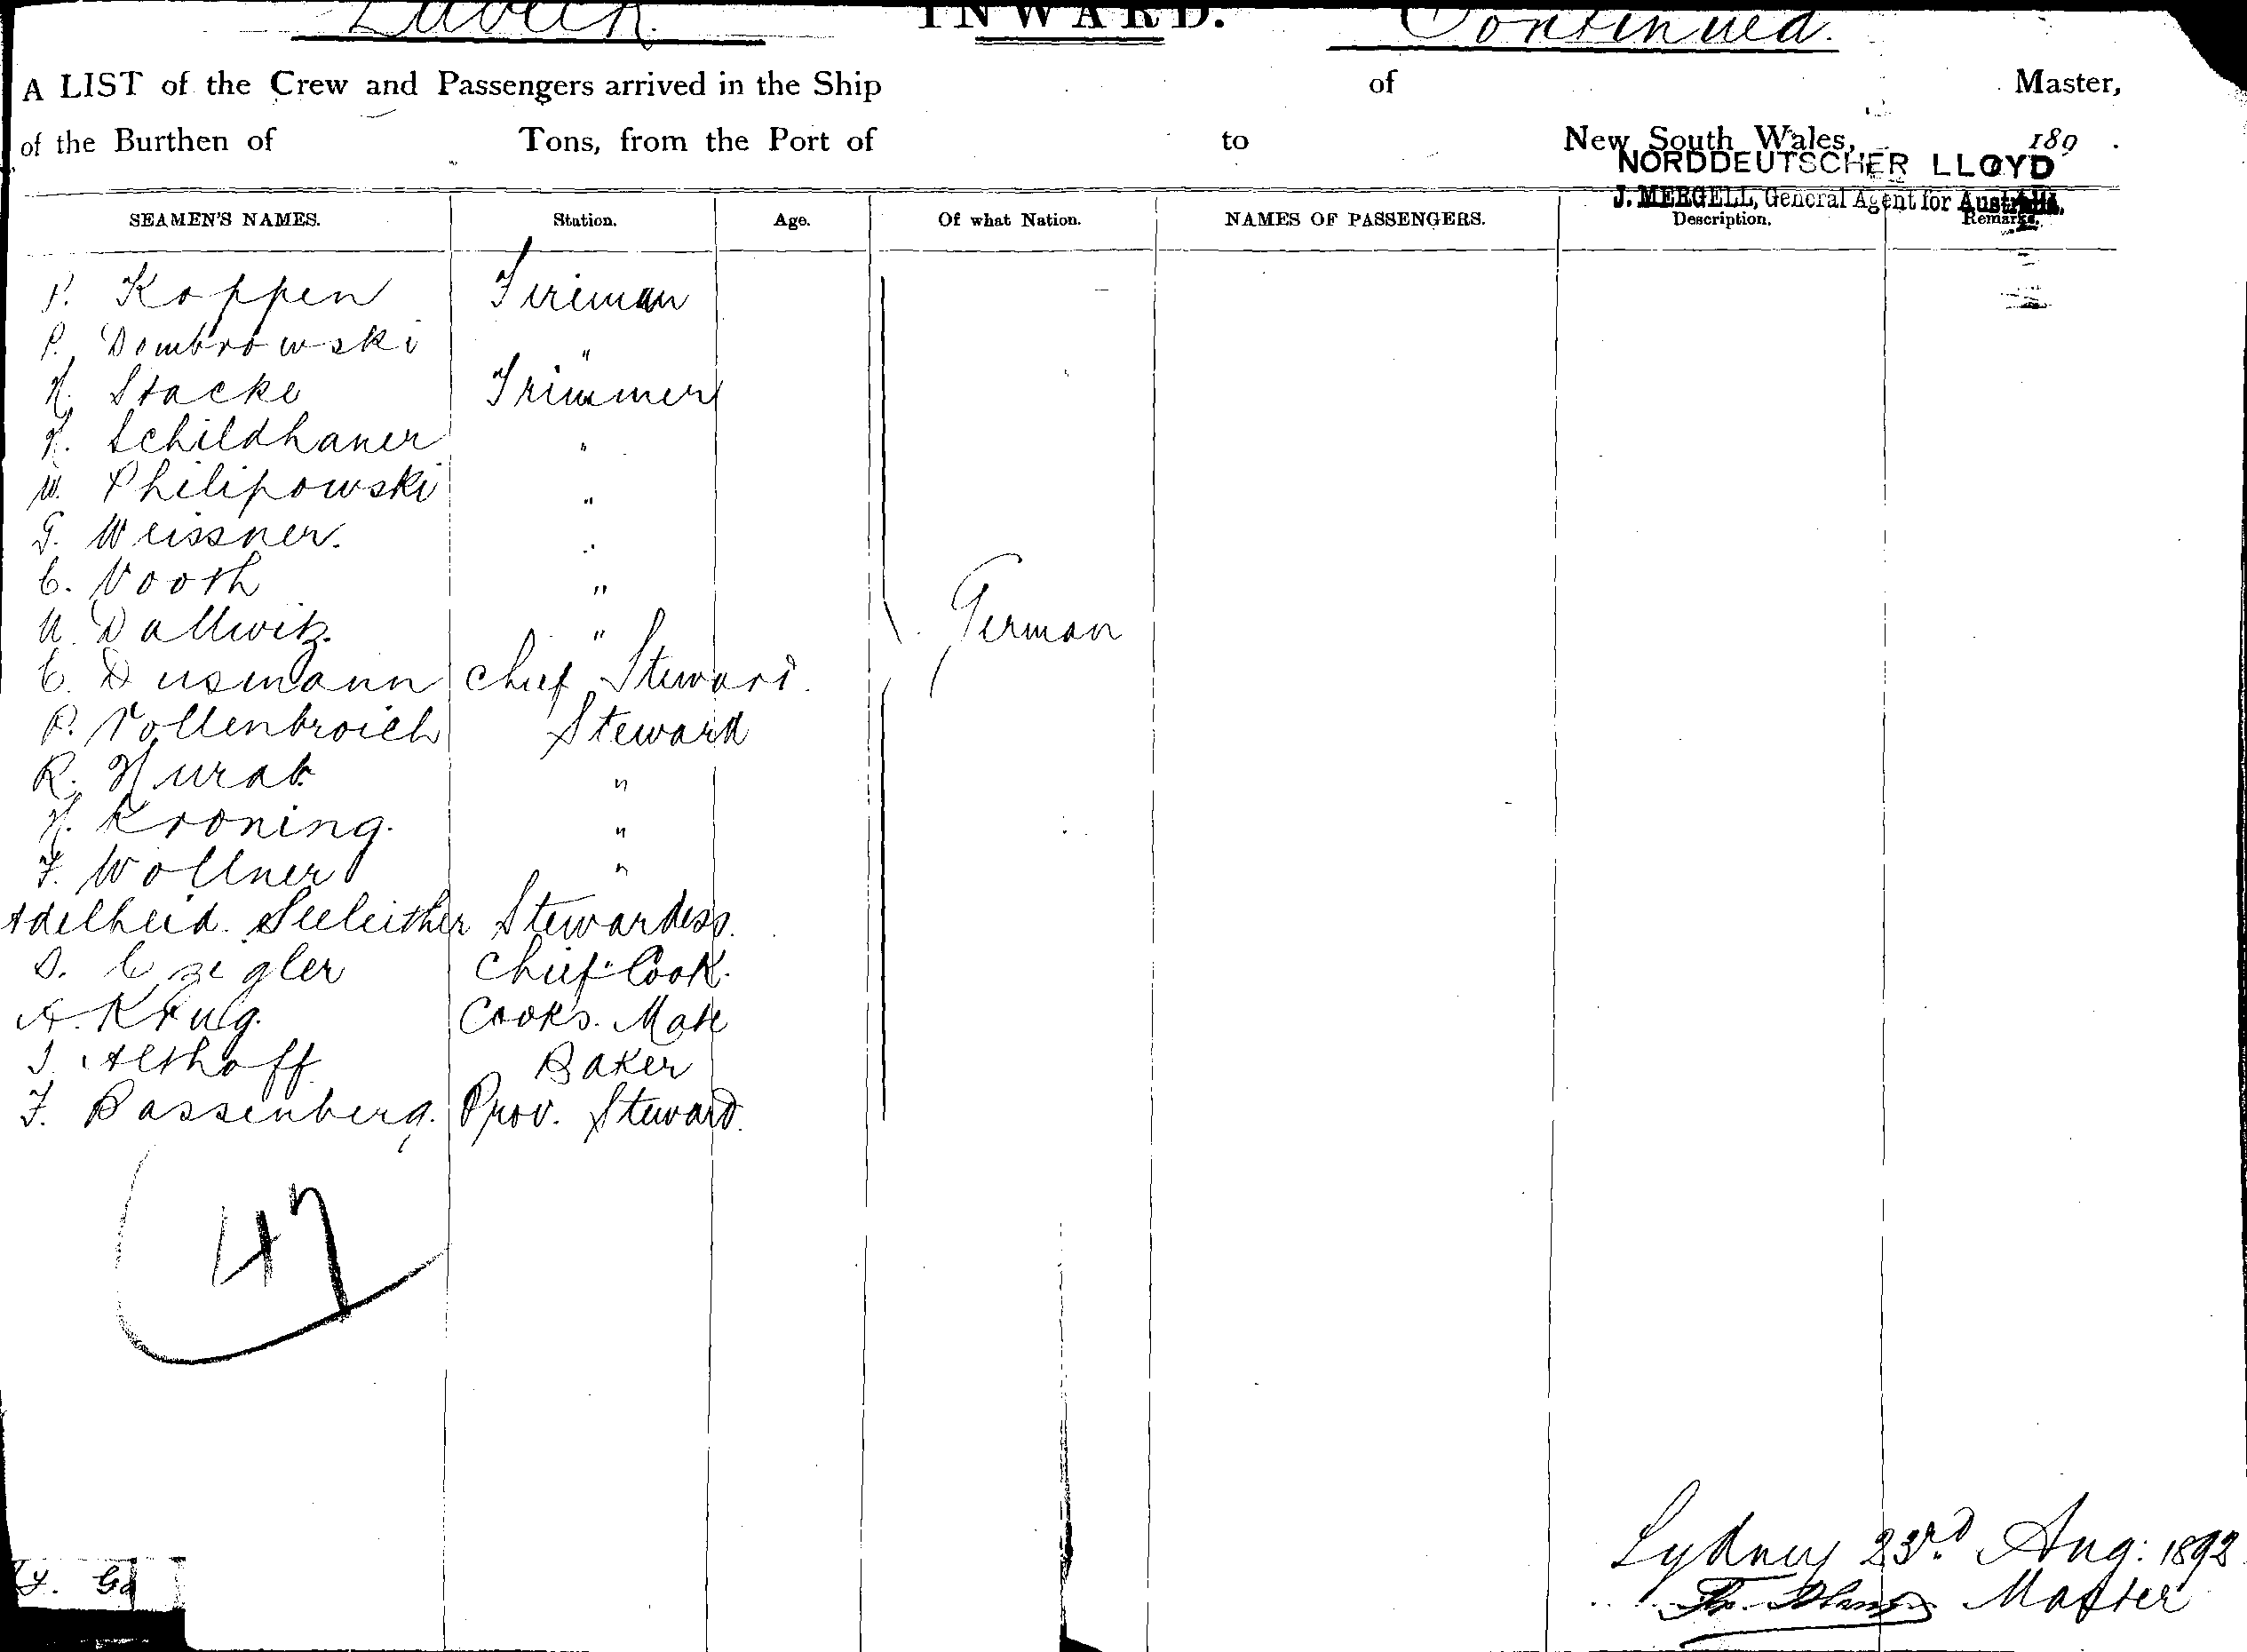 Lübeck. INWARD. Continued.
A LIST of the Crew and Passengers arrived in the Ship of Master,
of the Burthen of Tons, from the Port of to New South Wales, 189 .
NORDDEUTSCHER LLOYD
J. MERGELL, General Agent for Australia.
SEAMEN'S NAMES. Station. Age. Of what Nation. NAMES OF PASSENGERS. Description. Remarks.
P. Koppen Fireman
P. Dombrowski "
H. Stacke Trimmer
H. Schildhaner "
W. Philipowski "
G. Weissner. "
C. Vooth "
U. Dallwitz. " German
C. Dusmann Chief Steward.
P. Vollenbroich Steward
R. Hurab. "
H. Kroning. "
F. Wollner "
Adelheid. Seeleither Stewardess.
O. Czigler Chief Cook.
A. Krug. Cooks. Mate
J. Althoff. Baker
F. Bassenberg. Prov. Steward.
47
Sydney 23rd Aug: 1892
Master